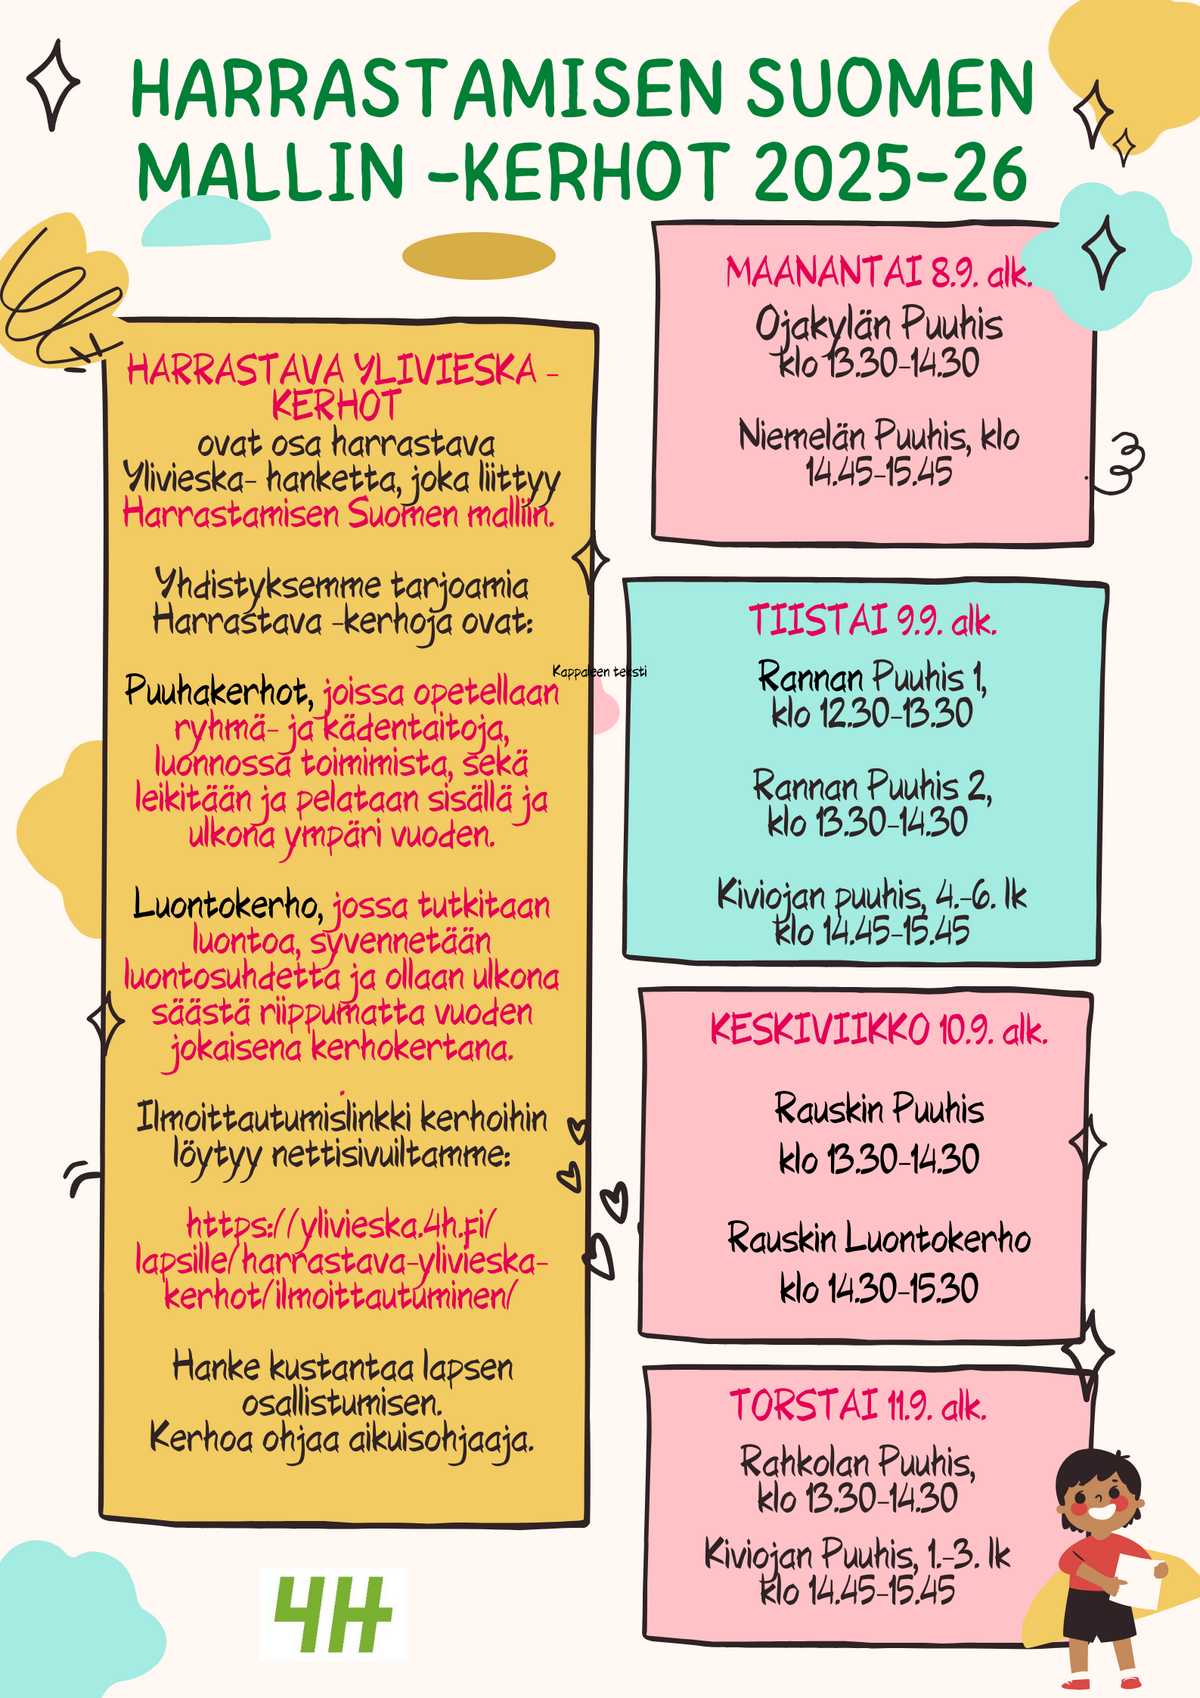 HARRASTAMISEN SUOMEN
MALLIN -KERHOT 2025-26
HARRASTAVA YLIVIESKA -
KERHOT
ovat osa harrastava
Ylivieska- hanketta, joka liittyy
Harrastamisen Suomen malliin.
Yhdistyksemme tarjoamia
Harrastava -kerhoja ovat:
Puuhakerhot, joissa opetellaan
ryhmä- ja kädentaitoja,
luonnossa toimimista, sekä
leikitään ja pelataan sisällä ja
ulkona ympäri vuoden.
Luontokerho, jossa tutkitaan
luontoa, syvennetään
luontosuhdetta ja ollaan ulkona
säästä riippumatta vuoden
jokaisena kerhokertana.
.
Ilmoittautumislinkki kerhoihin
löytyy nettisivuiltamme:
https://ylivieska.4h.fi/
lapsille/harrastava-ylivieska-
kerhot/ilmoittautuminen/
Hanke kustantaa lapsen
osallistumisen.
Kerhoa ohjaa aikuisohjaaja.
4H
Kappaleen teksti
MAANANTAI 8.9. alk.
Ojakylän Puuhis
klo 13.30-14.30
Niemelän Puuhis, klo
14.45-15.45
TIISTAI 9.9. alk.
Rannan Puuhis 1,
klo 12.30-13.30
Rannan Puuhis 2,
klo 13.30-14.30
Kiviojan puuhis, 4.-6. lk
klo 14.45-15.45
KESKIVIIKKO 10.9. alk.
Rauskin Puuhis
klo 13.30-14.30
Rauskin Luontokerho
klo 14.30-15.30
TORSTAI 11.9. alk.
Rahkolan Puuhis,
klo 13.30-14.30
Kiviojan Puuhis, 1.-3. lk
klo 14.45-15.45